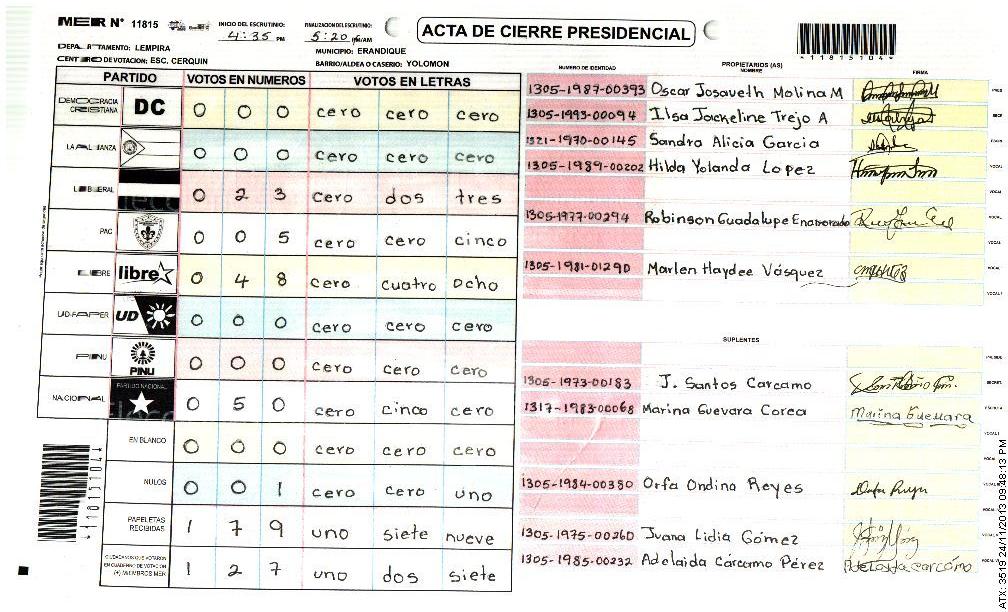 MER N° 11815
INICIO DEL ESCRUTINIO: 4:35 PM
FINALIZACION DEL ESCRUTINIO: 5:20 PM/AM
ACTA DE CIERRE PRESIDENCIAL
*11815104*
DEPARTAMENTO: LEMPIRA
MUNICIPIO: ERANDIQUE
CENTRO DE VOTACION: ESC. CERQUIN
BARRIO/ALDEA O CASERIO: YOLOMON
PARTIDO VOTOS EN NUMEROS VOTOS EN LETRAS
DEMOCRACIA CRISTIANA DC 0 0 0 cero cero cero
LA ALIANZA 0 0 0 cero cero cero
LIBERAL 0 2 3 cero dos tres
PAC 0 0 5 cero cero cinco
LIBRE libre 0 4 8 cero cuatro ocho
UD-FAPER UD 0 0 0 cero cero cero
PINU PINU 0 0 0 cero cero cero
NACIONAL PARTIDO NACIONAL 0 5 0 cero cinco cero
EN BLANCO 0 0 0 cero cero cero
NULOS 0 0 1 cero cero uno
PAPELETAS RECIBIDAS 1 7 9 uno siete nueve
CIUDADANOS QUE VOTARON EN CUADERNO DE VOTACION (+) MIEMBROS MER 1 2 7 uno dos siete
*11815104*
PROPIETARIOS (AS)
NUMERO DE IDENTIDAD NOMBRE FIRMA
1305-1987-00393 Oscar Josaveth Molina M
1305-1993-00094 Ilsa Jackeline Trejo A
1321-1970-00145 Sandra Alicia Garcia
1305-1989-00202 Hilda Yolanda Lopez
1305-1977-00294 Robinson Guadalupe Enamorado
1305-1981-01290 Marlen Haydee Vásquez
SUPLENTES
1305-1973-00183 J. Santos Carcamo
1317-1983-00068 Marina Guevara Corea Marina Guevara
1305-1984-00380 Orfa Ondina Reyes
1305-1975-00260 Juana Lidia Gómez
1305-1985-00232 Adelaida Cárcamo Pérez Adelaida carcamo
ATX: 3519 24/11/2013 09:48:13 PM